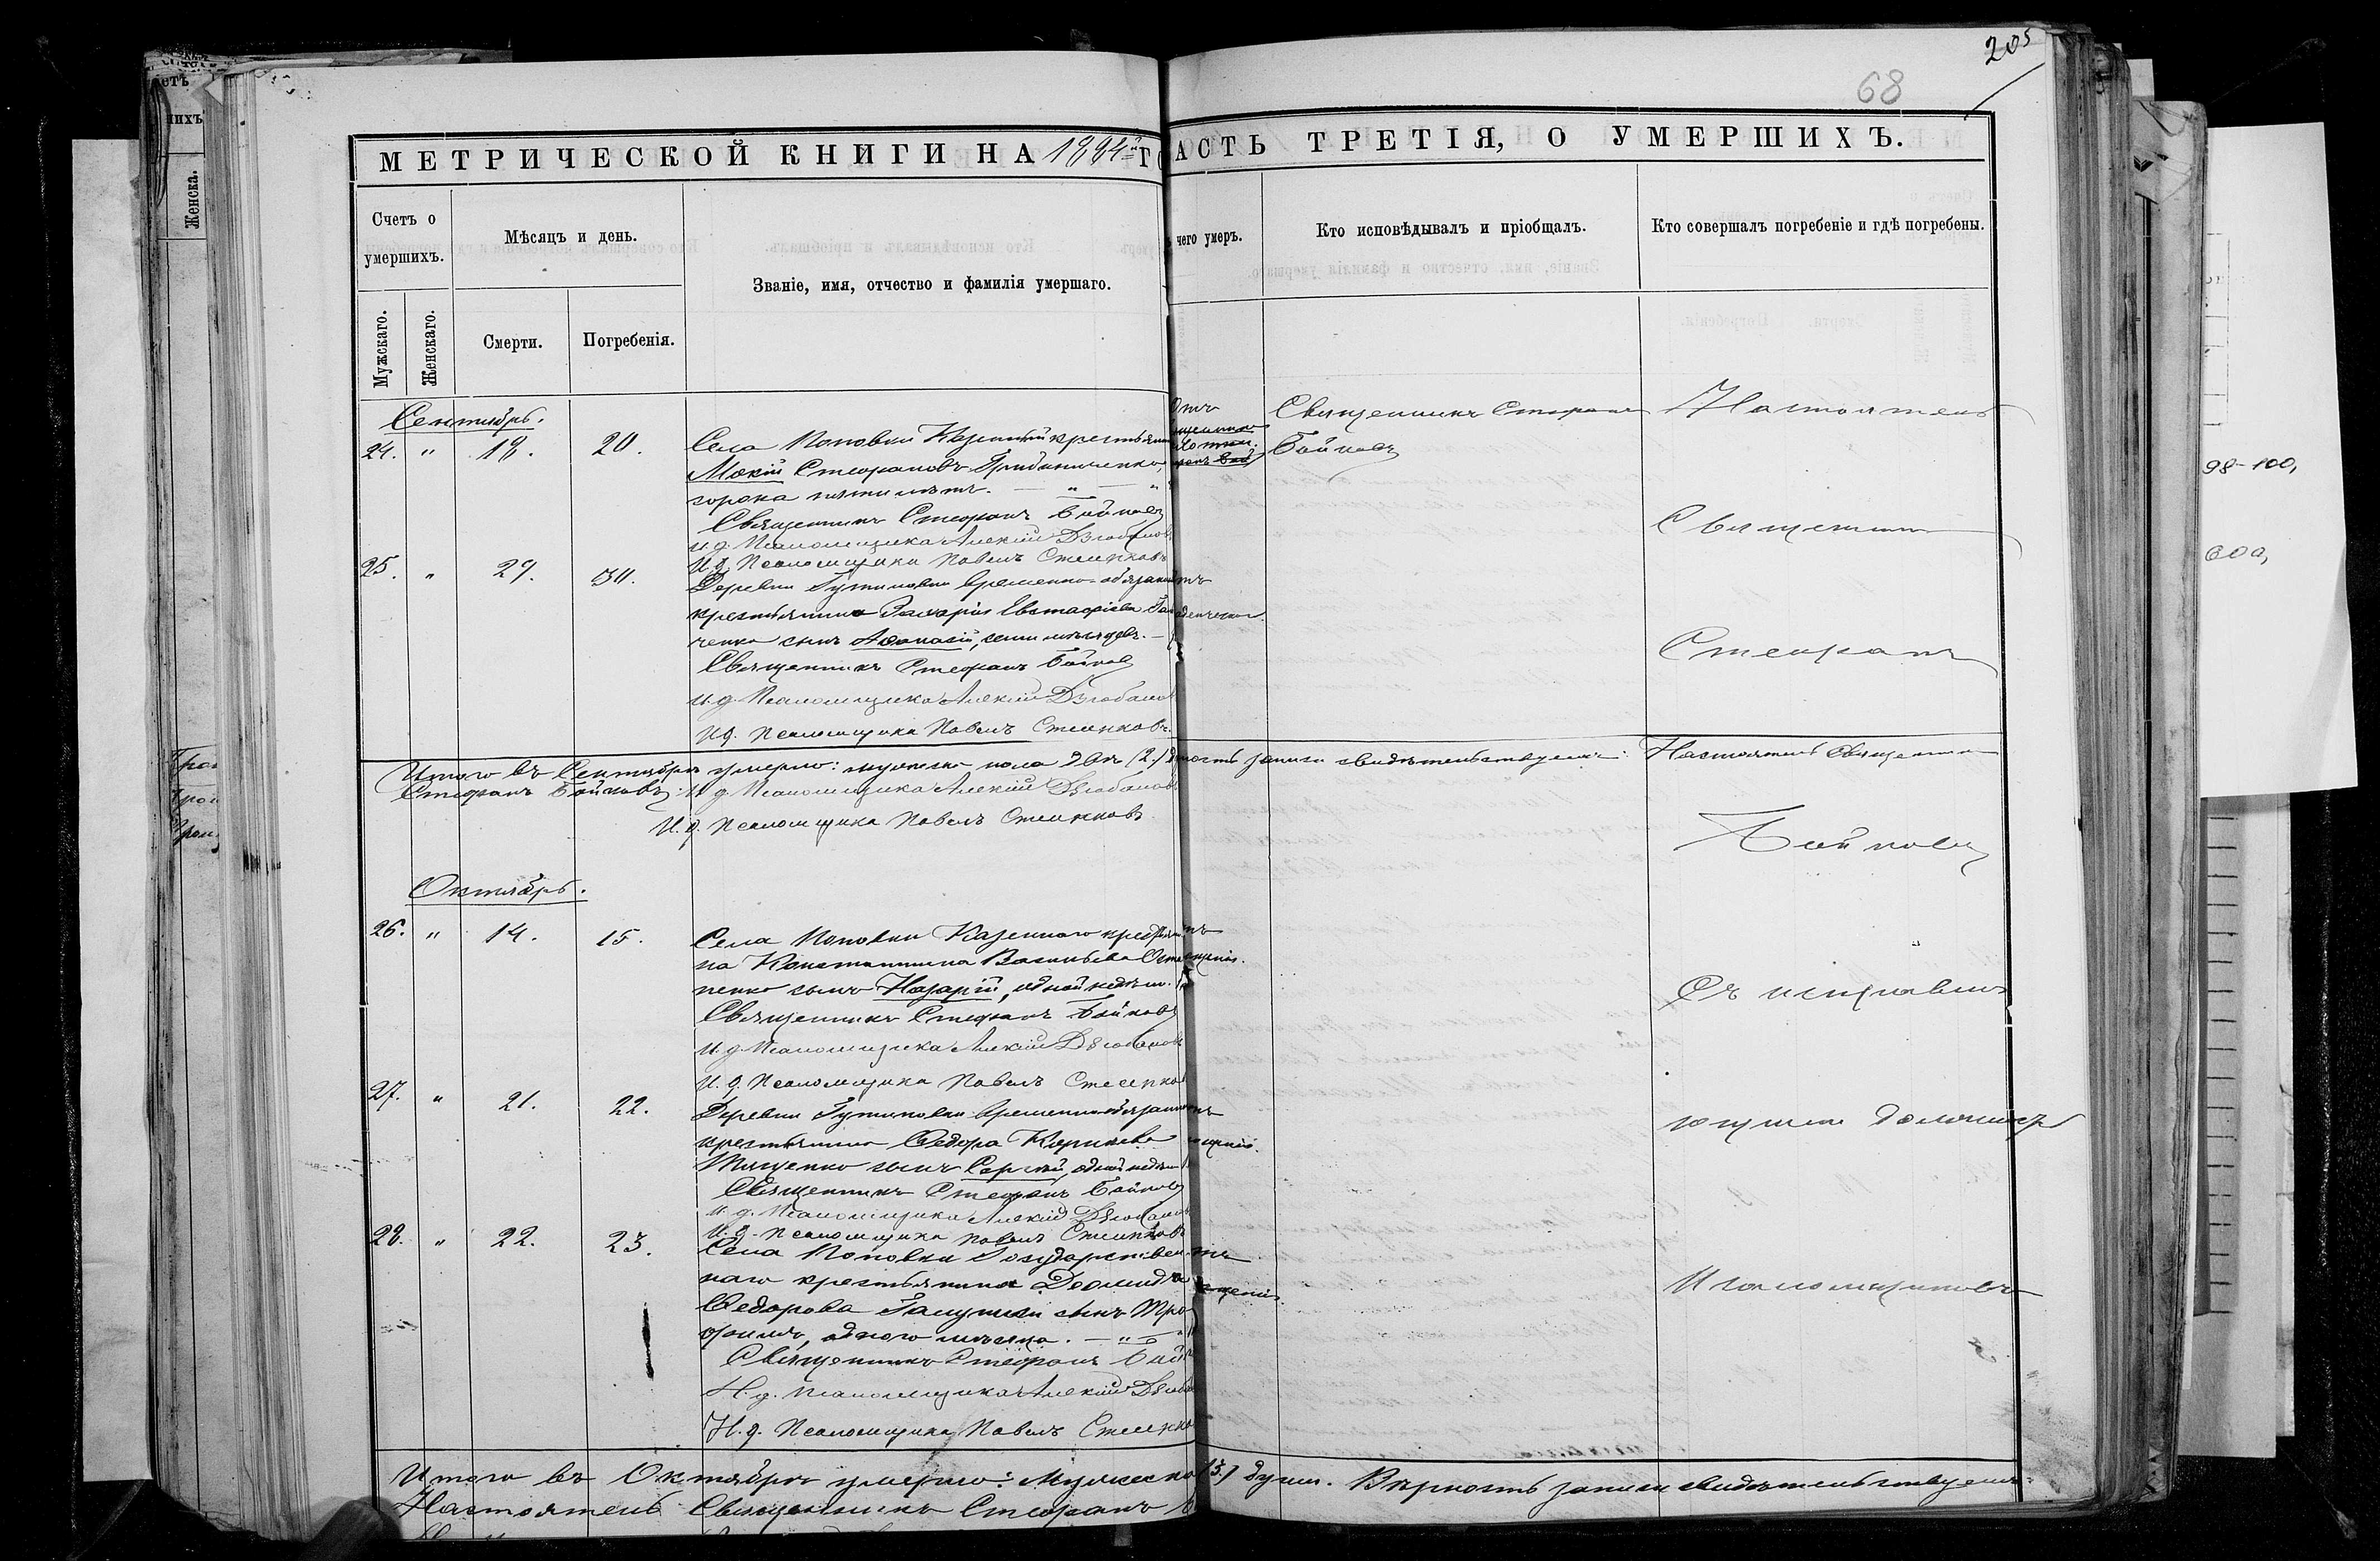 205
68
МЕТРИЧЕСКОЙ КНИГИ НА 1884 ГО
АСТЬ ТРЕТІЯ, О УМЕРШИХЪ.
Счетъ о умершихъ.
Мужскаго.
Женскаго.
Мѣсяцъ и день.
Смерти.
Погребенія.
Званіе, имя, отчество и фамилія умершаго.
чего умеръ.
Кто исповѣдывалъ и пріобщалъ.
Кто совершалъ погребеніе и гдѣ погребены.
Сентябрь.
24. " 18. 20.
Села Поповки Казенный крестьянин
Мокій Стефановъ
сорока пяти лѣтъ. — " — "
Священникъ Стефанъ Бойковъ
И. д. Псаломщика Алексій Дзюбановъ
И. д. Псаломщика Павелъ Стеценковъ
Отъ
Священникъ Стефанъ
Бойковъ
25. " 29. 30.
Деревни Гутиловки временно-обязан
крестьянина Захарія Евстафіева Га
ченко сынъ Афанасій, семи мѣсяцев. —
Священникъ Стефанъ Бойковъ
И. д. Псаломщика Алексій Дзюбановъ
И. д. Псаломщика Павелъ Стеценковъ
Настоятель
Священник
Стефанъ
Итого въ Сентябрѣ умерло: мужеска пола два (2.)
ность записи свидѣтельствуемъ: Настоятель Священник
Стефанъ Бойковъ И. д. Псаломщика Алексій Дзюбановъ
И. д. Псаломщика Павелъ Стеценковъ
Бойковъ
Октябрь.
26. " 14. 15.
Села Поповки Казеннаго крестьяни
на Константина Васильева
ненко сынъ Назарій, одной недѣли.
Священникъ Стефанъ Бойковъ
И. д. Псаломщика Алексій Дзюбановъ
И. д. Псаломщика Павелъ Стеценков
Съ исправл
27. " 21. 22.
Деревни Гутиловки временнообязанн
крестьянина Ѳедора Корнѣева
Тищенко сынъ Сергѣй, одной недѣли
Священникъ Стефанъ Бойковъ
И. д. Псаломщика Алексій Дзюбановъ
И. д. Псаломщика Павелъ Стеценков
ющими должность
28. " 22. 23.
Села Поповки Государствен
наго крестьянина Деомида
Ѳедорова Галушки сынъ Тро
фимъ, одного мѣсяца. — " — "
Священникъ Стефанъ Бой
И. д. Псаломщика Алексій Дзюба
И. д. Псаломщика Павелъ Стеценко
Псаломщиковъ
Итого въ Октябрѣ умерло: Мужеска
(3.) души. Вѣрность записи свидѣтельствуемъ:
Настоятель Священникъ Стефанъ
98-100,
Женска.